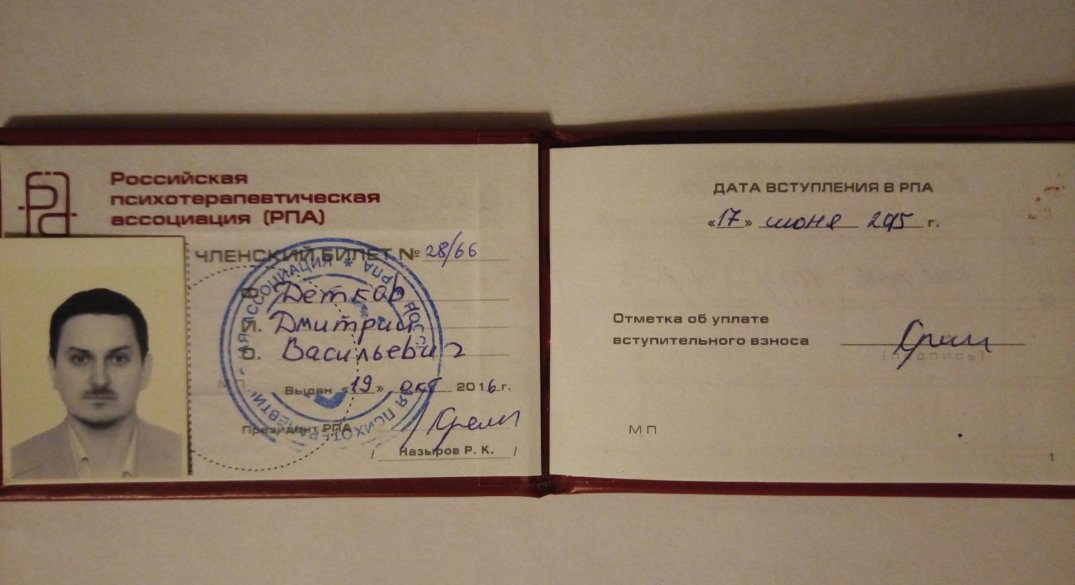 Российская
психотерапевтическая
ассоциация (РПА)
ЧЛЕНСКИЙ БИЛЕТ № 28/66
Ф. Детков
И. Дмитрий
О. Васильевич
М.П.
Выдан «19» окт 2016 г.
Президент РПА
/ Назыров Р. К. /
ДАТА ВСТУПЛЕНИЯ В РПА
«17» июня 205 г.
Отметка об уплате
вступительного взноса
(подпись)
М П
1